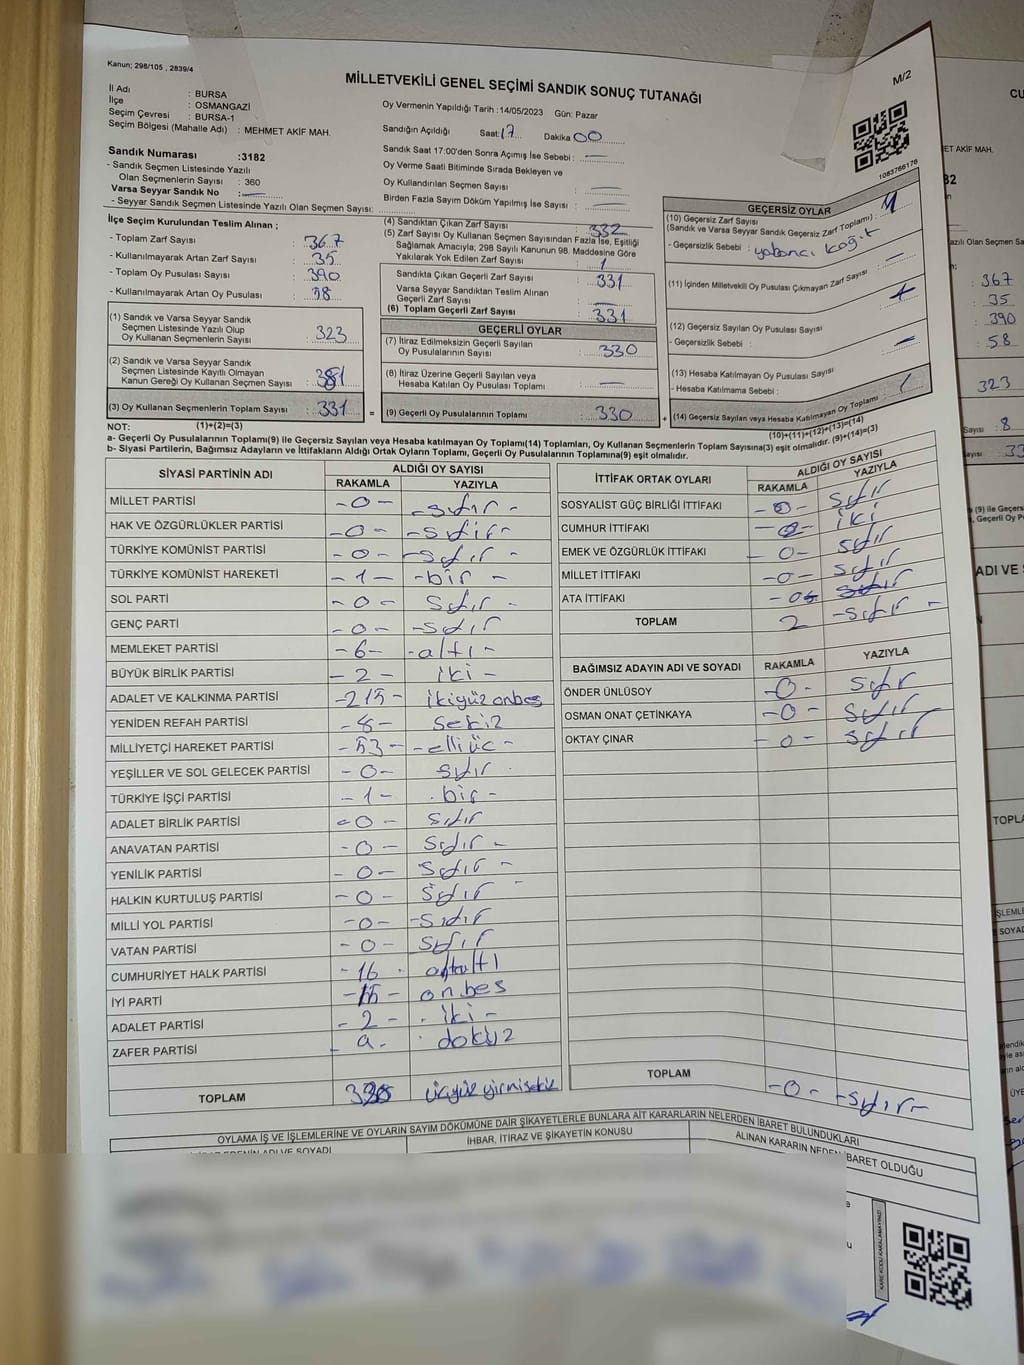 Kanun; 298/105 , 2839/4
M/2
MİLLETVEKİLİ GENEL SEÇİMİ SANDIK SONUÇ TUTANAĞI
İl Adı : BURSA
İlçe : OSMANGAZİ
Seçim Çevresi : BURSA-1
Seçim Bölgesi (Mahalle Adı) : MEHMET AKİF MAH.
Oy Vermenin Yapıldığı Tarih :14/05/2023 Gün: Pazar
Sandığın Açıldığı Saat:17 Dakika 00
Sandık Saat 17:00'den Sonra Açımış İse Sebebi : —
Oy Verme Saati Bitiminde Sırada Bekleyen ve
Oy Kullandırılan Seçmen Sayısı : —
Birden Fazla Sayım Döküm Yapılmış İse Sayısı : —
1083766176
Sandık Numarası :3182
- Sandık Seçmen Listesinde Yazılı
Olan Seçmenlerin Sayısı : 360
Varsa Seyyar Sandık No : —
- Seyyar Sandık Seçmen Listesinde Yazılı Olan Seçmen Sayısı:
İlçe Seçim Kurulundan Teslim Alınan ;
- Toplam Zarf Sayısı : 367
- Kullanılmayarak Artan Zarf Sayısı : 35
- Toplam Oy Pusulası Sayısı : 390
- Kullanılmayarak Artan Oy Pusulası : 58
(1) Sandık ve Varsa Seyyar Sandık
Seçmen Listesinde Yazılı Olup
Oy Kullanan Seçmenlerin Sayısı : 323
(2) Sandık ve Varsa Seyyar Sandık
Seçmen Listesinde Kayıtlı Olmayan
Kanun Gereği Oy Kullanan Seçmen Sayısı :
(3) Oy Kullanan Seçmenlerin Toplam Sayısı : 331
(4) Sandıktan Çıkan Zarf Sayısı : 332
(5) Zarf Sayısı Oy Kullanan Seçmen Sayısından Fazla İse, Eşitliği
Sağlamak Amacıyla; 298 Sayılı Kanunun 98. Maddesine Göre
Yakılarak Yok Edilen Zarf Sayısı : 1
Sandıkta Çıkan Geçerli Zarf Sayısı : 331
Varsa Seyyar Sandıktan Teslim Alınan
Geçerli Zarf Sayısı : —
(6) Toplam Geçerli Zarf Sayısı : 331
GEÇERLİ OYLAR
(7) İtiraz Edilmeksizin Geçerli Sayılan
Oy Pusulalarının Sayısı : 330
(8) İtiraz Üzerine Geçerli Sayılan veya
Hesaba Katılan Oy Pusulası Toplamı : —
= (9) Geçerli Oy Pusulalarının Toplamı : 330
GEÇERSİZ OYLAR
(10) Geçersiz Zarf Sayısı
(Sandık ve Varsa Seyyar Sandık Geçersiz Zarf Toplamı) :
- Geçersizlik Sebebi : yabancı kağıt
(11) İçinden Milletvekili Oy Pusulası Çıkmayan Zarf Sayısı : —
(12) Geçersiz Sayılan Oy Pusulası Sayısı :
- Geçersizlik Sebebi :
(13) Hesaba Katılmayan Oy Pusulası Sayısı : —
- Hesaba Katılmama Sebebi :
+ (14) Geçersiz Sayılan veya Hesaba Katılmayan Oy Toplamı : 1
NOT: (1)+(2)=(3) (10)+(11)+(12)+(13)=(14)
a- Geçerli Oy Pusulalarının Toplamı(9) ile Geçersiz Sayılan veya Hesaba katılmayan Oy Toplamı(14) Toplamları, Oy Kullanan Seçmenlerin Toplam Sayısına(3) eşit olmalıdır. (9)+(14)=(3)
b- Siyasi Partilerin, Bağımsız Adayların ve İttifakların Aldığı Ortak Oyların Toplamı, Geçerli Oy Pusulalarının Toplamına(9) eşit olmalıdır.
SİYASİ PARTİNİN ADI ALDIĞI OY SAYISI
RAKAMLA YAZIYLA
MİLLET PARTİSİ -0- -sıfır-
HAK VE ÖZGÜRLÜKLER PARTİSİ -0- -sıfır-
TÜRKİYE KOMÜNİST PARTİSİ -0- -sıfır-
TÜRKİYE KOMÜNİST HAREKETİ -1- -bir-
SOL PARTİ -0- sıfır-
GENÇ PARTİ -0- -sıfır
MEMLEKET PARTİSİ -6- -altı-
BÜYÜK BİRLİK PARTİSİ -2- iki-
ADALET VE KALKINMA PARTİSİ -215- ikiyüz onbeş
YENİDEN REFAH PARTİSİ -8- sekiz
MİLLİYETÇİ HAREKET PARTİSİ -53- -elliüç-
YEŞİLLER VE SOL GELECEK PARTİSİ -0- sıfır
TÜRKİYE İŞÇİ PARTİSİ -1- bir-
ADALET BİRLİK PARTİSİ -0- sıfır
ANAVATAN PARTİSİ -0- sıfır-
YENİLİK PARTİSİ -0- sıfır-
HALKIN KURTULUŞ PARTİSİ -0- sıfır
MİLLİ YOL PARTİSİ -0- -sıfır
VATAN PARTİSİ -0- sıfır
CUMHURİYET HALK PARTİSİ -16- onaltı
İYİ PARTİ -15- onbeş
ADALET PARTİSİ -2- iki-
ZAFER PARTİSİ 9- dokuz
TOPLAM üçyüz yirmisekiz
İTTİFAK ORTAK OYLARI ALDIĞI OY SAYISI
RAKAMLA YAZIYLA
SOSYALİST GÜÇ BİRLİĞİ İTTİFAKI -0- sıfır
CUMHUR İTTİFAKI -2- iki
EMEK VE ÖZGÜRLÜK İTTİFAKI -0- sıfır
MİLLET İTTİFAKI -0- sıfır
ATA İTTİFAKI sıfır
TOPLAM 2 -sıfır-
BAĞIMSIZ ADAYIN ADI VE SOYADI RAKAMLA YAZIYLA
ÖNDER ÜNLÜSOY -0- sıfır
OSMAN ONAT ÇETİNKAYA -0- sıfır
OKTAY ÇINAR -0- sıfır
TOPLAM -0- -sıfır-
OYLAMA İŞ VE İŞLEMLERİNE VE OYLARIN SAYIM DÖKÜMÜNE DAİR ŞİKAYETLERLE BUNLARA AİT KARARLARIN NELERDEN İBARET BULUNDUKLARI
İHBAR, İTİRAZ VE ŞİKAYETİN KONUSU
ALINAN KARARIN NEDEN İBARET OLDUĞU
KARE KODU KARALAMAYINIZ!
CU
ET AKİF MAH.
367
35
390
58
323
8
TOPLA